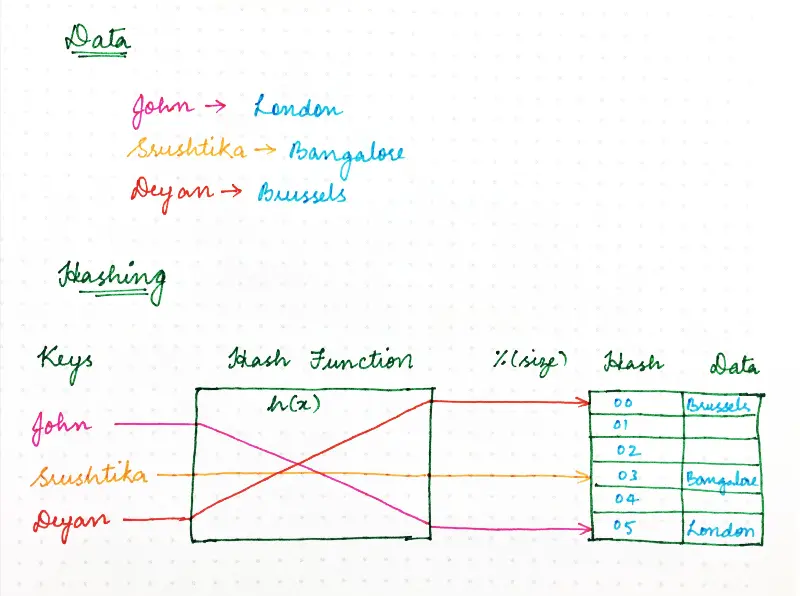 Data
John → London
Srushtika → Bangalore
Deyan → Brussels
Hashing
Keys Hash Function %(size) Hash Data
h(x)
00 Brussels
John
01
02
Srushtika
03 Bangalore
04
Deyan
05 London